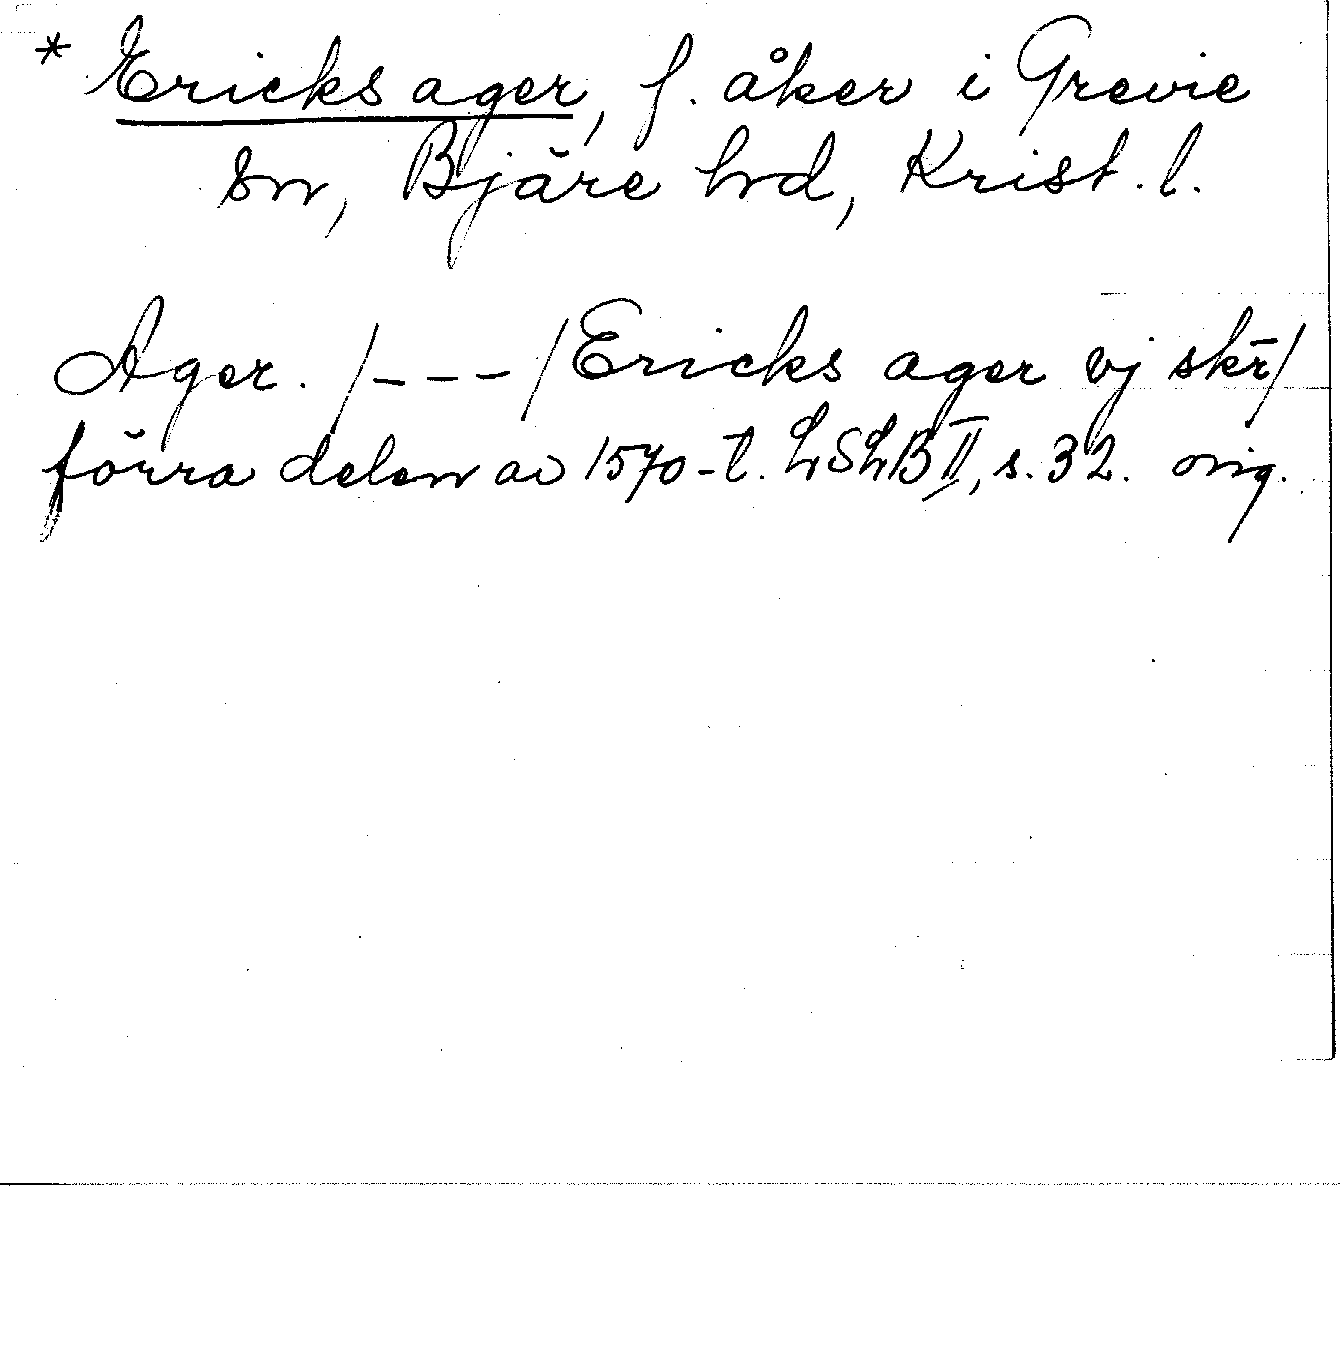 * Ericks ager, f. åker i Grevie
sn, Bjäre hd, Krist. l.
Ager. /---/ Ericks ager vj skr̄/
förra delen av 1570-t. LSLB II, s. 32. orig.